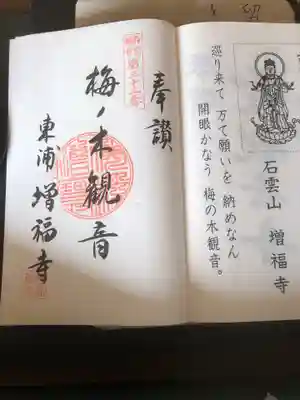 石雲山 増福寺
巡り来て 万て願いを 納めなん
開眼かなう 梅の木観音。
奉讃
梅ノ木観音
東浦 増福寺